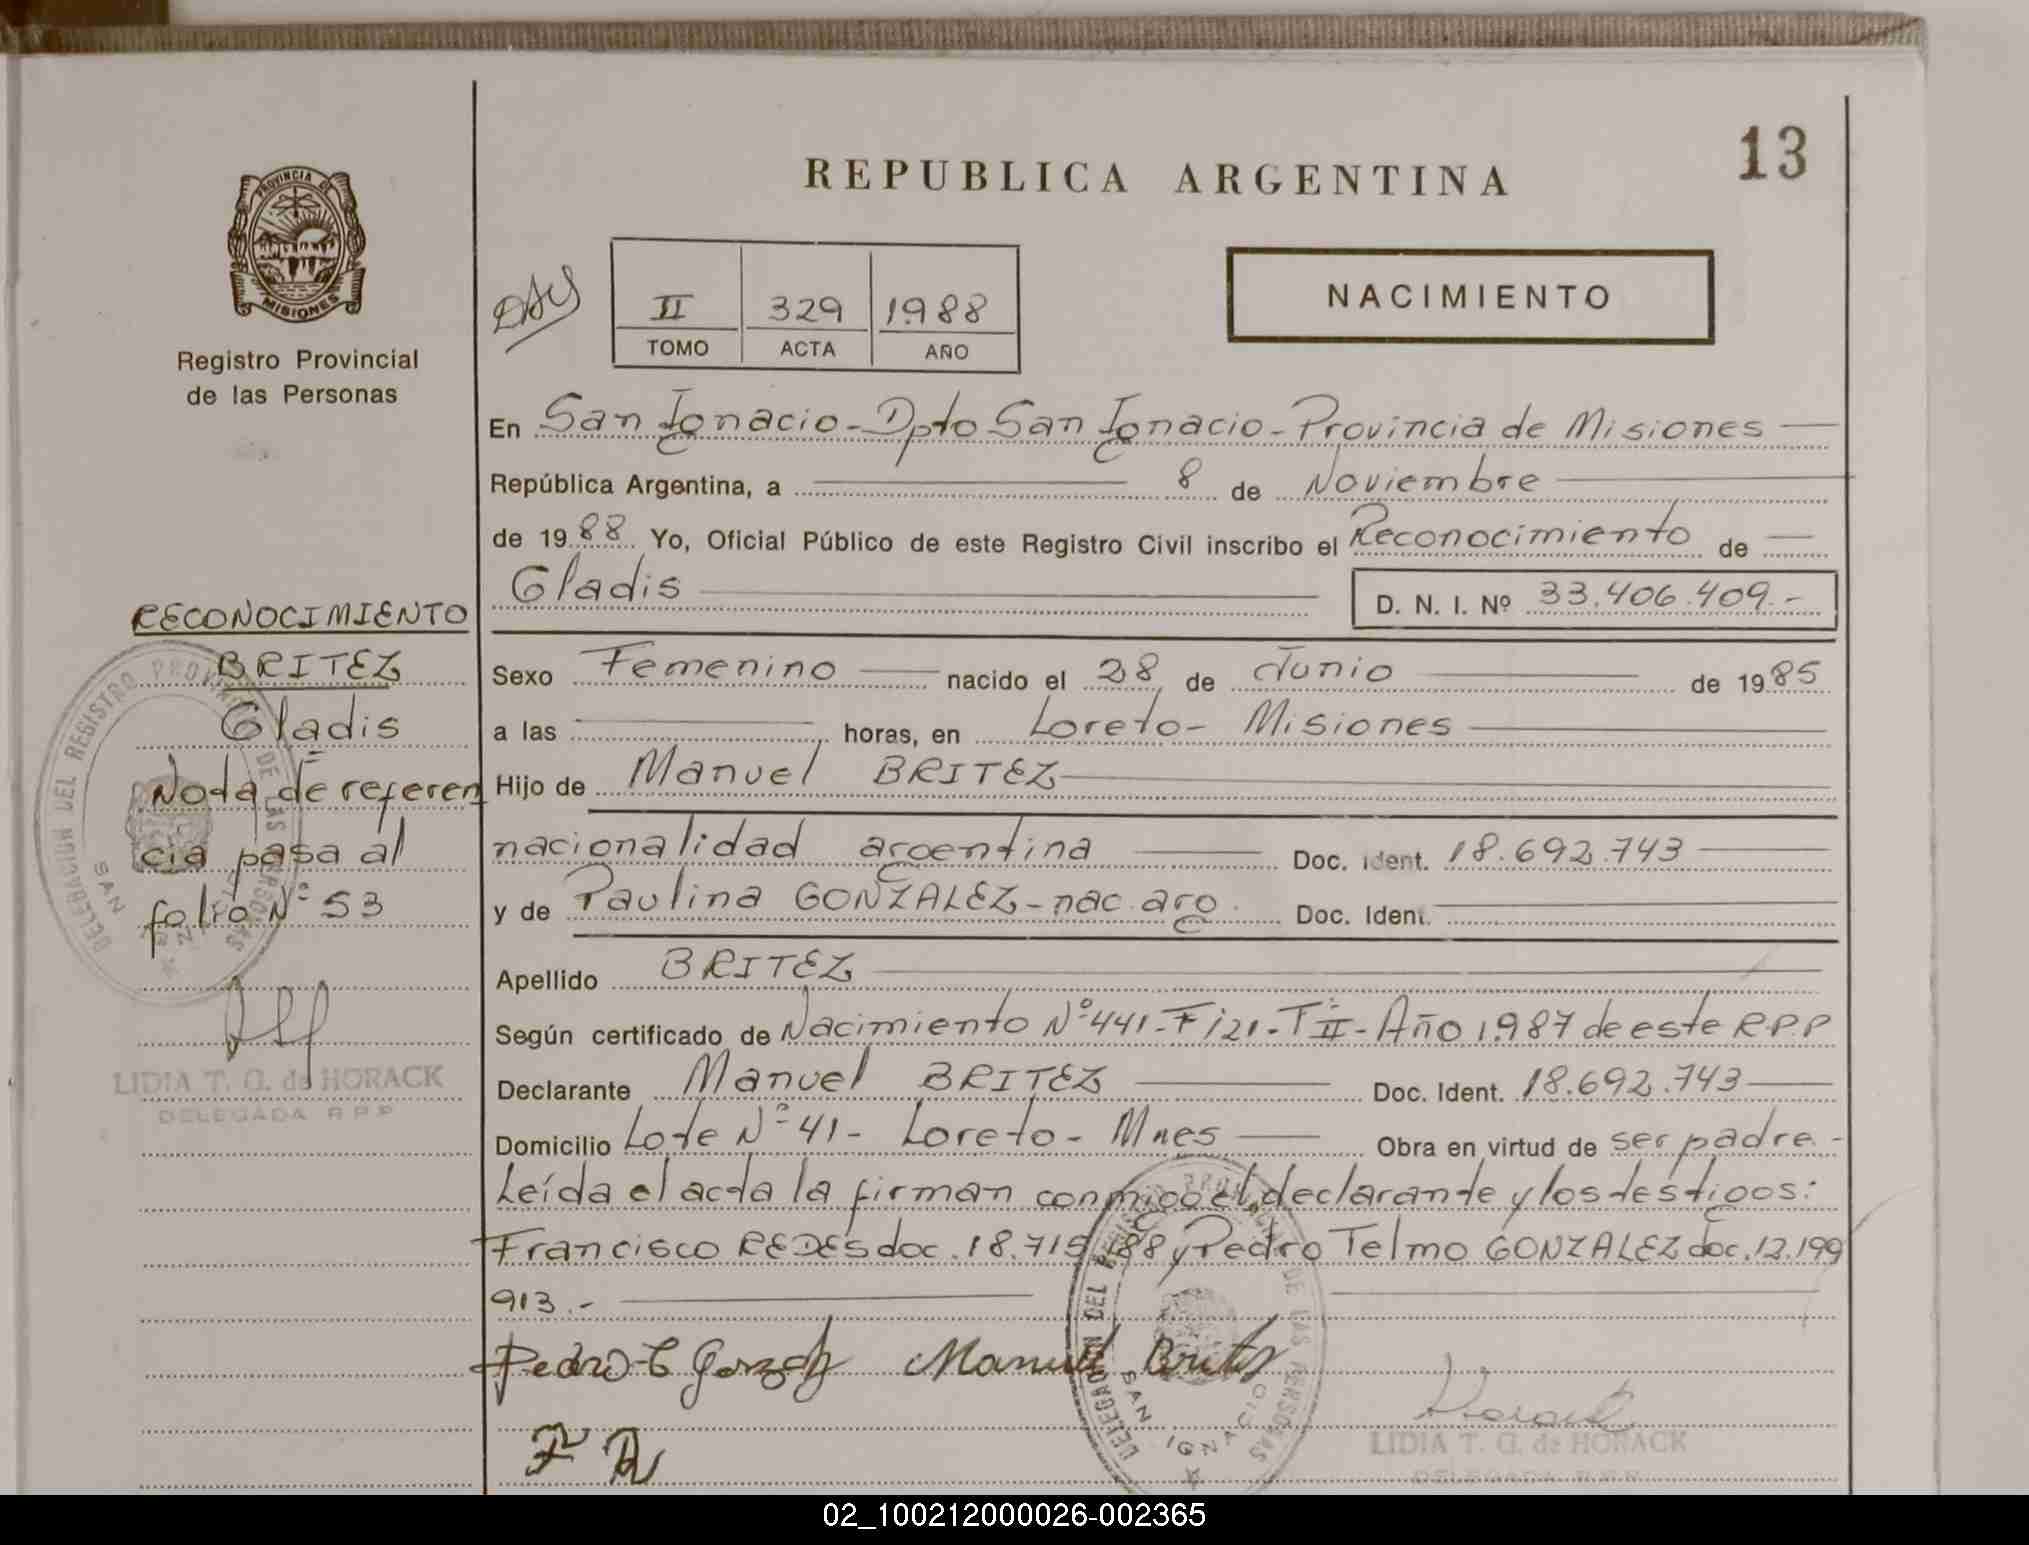 13
REPUBLICA ARGENTINA
PROVINCIA DE
MISIONES
Registro Provincial
de las Personas
II 329 1988
TOMO ACTA AÑO
NACIMIENTO
En San Ignacio - Dpto San Ignacio - Provincia de Misiones
República Argentina, a 8 de Noviembre
de 1988 Yo, Oficial Público de este Registro Civil inscribo el Reconocimiento de
Gladis D. N. I. Nº 33.406.409.-
Sexo Femenino nacido el 28 de Junio de 1985
a las horas, en Loreto - Misiones
Hijo de Manuel BRITEZ
nacionalidad argentina Doc. ident. 18.692.743
y de Paulina GONZALEZ - nac. arg. Doc. Ident.
Apellido BRITEZ
Según certificado de Nacimiento Nº 441 - F 121 - T II - Año 1.987 de este R.P.P
Declarante Manuel BRITEZ Doc. Ident. 18.692.743
Domicilio Lote Nº 41 - Loreto - Mnes Obra en virtud de ser padre.-
Leída el acta la firman conmigo el declarante y los testigos:
Francisco REDES doc. 18.715.188 y Pedro Telmo GONZALEZ doc. 12.199
913.-
Pedro T Gonzalez Manuel Britez
F R
Horack
LIDIA T. G. de HORACK
DELEGADA R.P.P.
DELEGACION DEL REGISTRO PROVINCIAL DE LAS PERSONAS
SAN IGNACIO
RECONOCIMIENTO
BRITEZ
Gladis
Nota de referen
cia pasa al
folio Nº 53
LIDIA T. G. de HORACK
DELEGADA R.P.P
DELEGACION DEL REGISTRO PROVINCIAL DE LAS PERSONAS
SAN
02_100212000026-002365